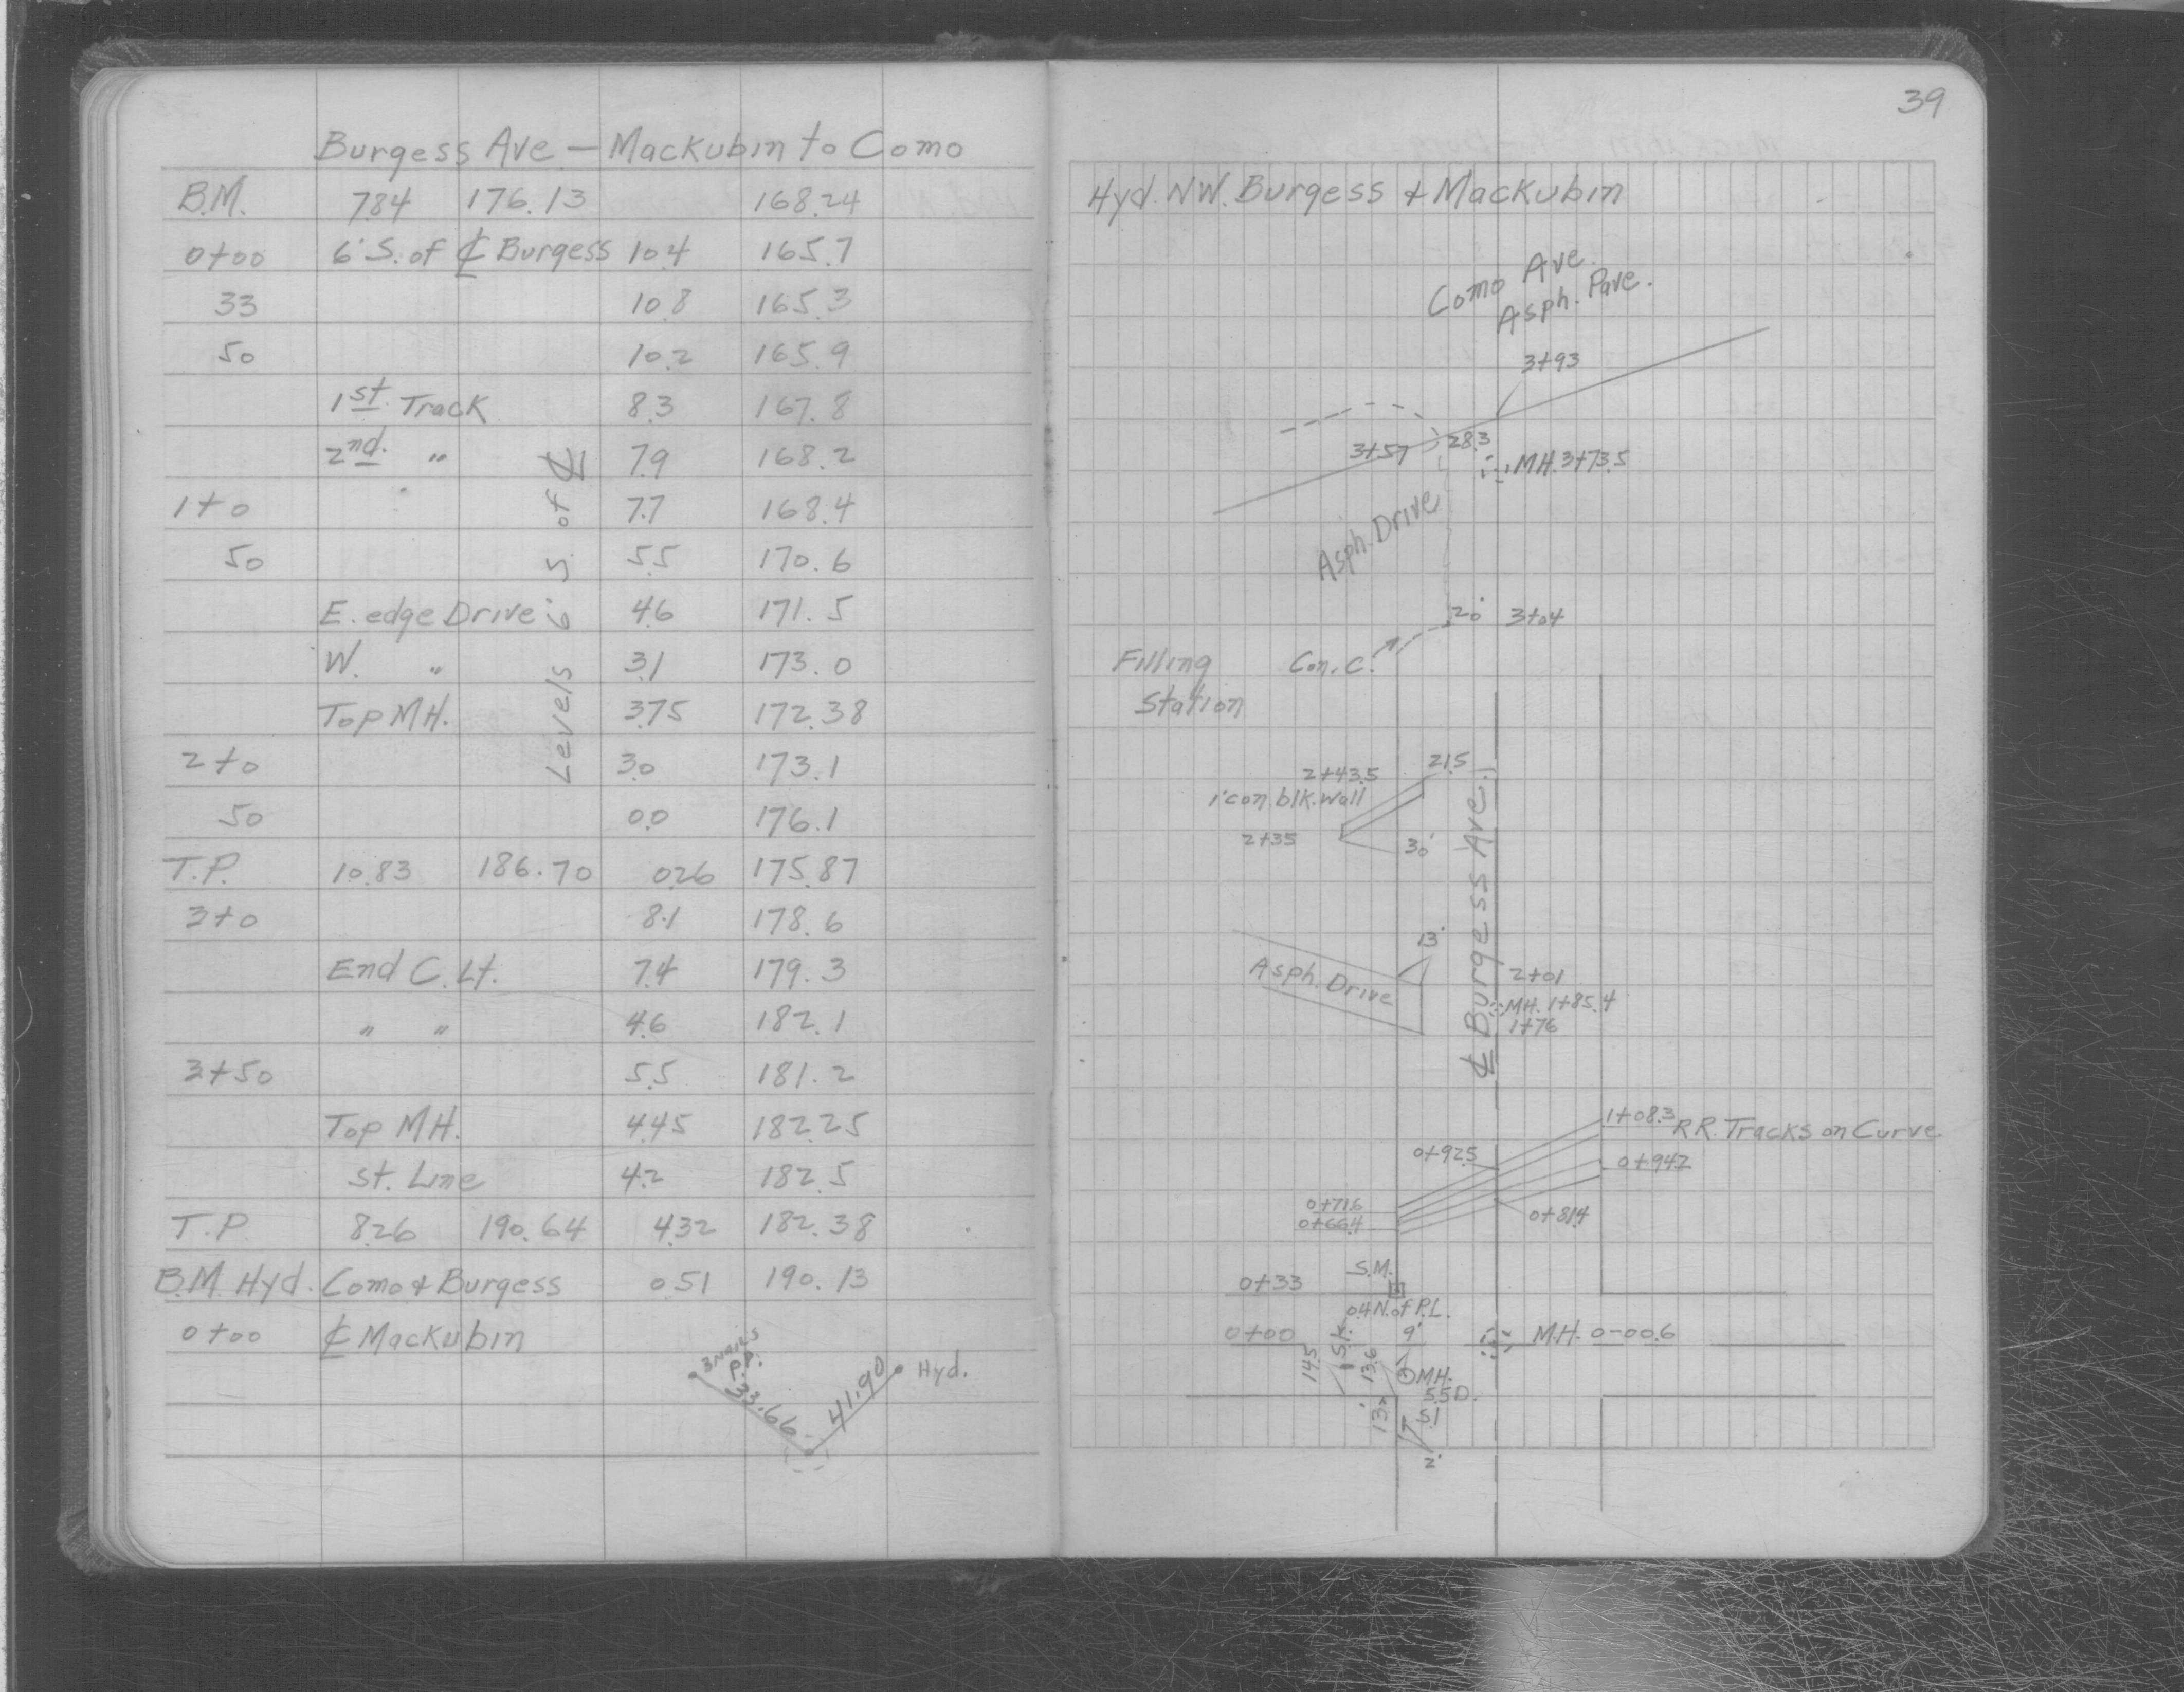 Burgess Ave — Mackubin to Como
B.M. 784 176.13 168.24
0+00 6' S. of ℄ Burgess 10.4 165.7
33 10.8 165.3
50 10.2 165.9
1st. Track 8.3 167.8
2nd. " 7.9 168.2
1+0 7.7 168.4
50 5.5 170.6
E. edge Drive 4.6 171.5
W. " 3.1 173.0
Top MH. 3.75 172.38
2+0 3.0 173.1
50 0.0 176.1
T.P. 10.83 186.70 0.26 175.87
3+0 8.1 178.6
End C. Lt. 7.4 179.3
" " 4.6 182.1
3+50 5.5 181.2
Top MH. 4.45 182.25
St. Line 4.2 182.5
T.P. 8.26 190.64 4.32 182.38
B.M. Hyd. Como & Burgess 0.51 190.13
0+00 ℄ Mackubin
Levels 6' S. of ℄
3 Nails
P.P.
33.66
41.90
Hyd.
39
Hyd. NW. Burgess & Mackubin
Como Ave.
Asph. Pave.
3+93
3+57 28.3
MH. 3+73.5
Asph. Drive
20' 3+04
Filling
Station
Con. C.
2+43.5 21.5
1' con. blk. wall
2+35 30'
℄ Burgess Ave.
13'
Asph. Drive
2+01
MH. 1+85.4
1+76
1+08.3 R.R. Tracks on Curve
0+92.5
0+94.2
0+71.6
0+66.4
0+81.4
S.M.
0+33
0.4 N. of P.L.
0+00 9' MH. 0-00.6
14.5
13.6
MH.
5.5 D.
13'
2'